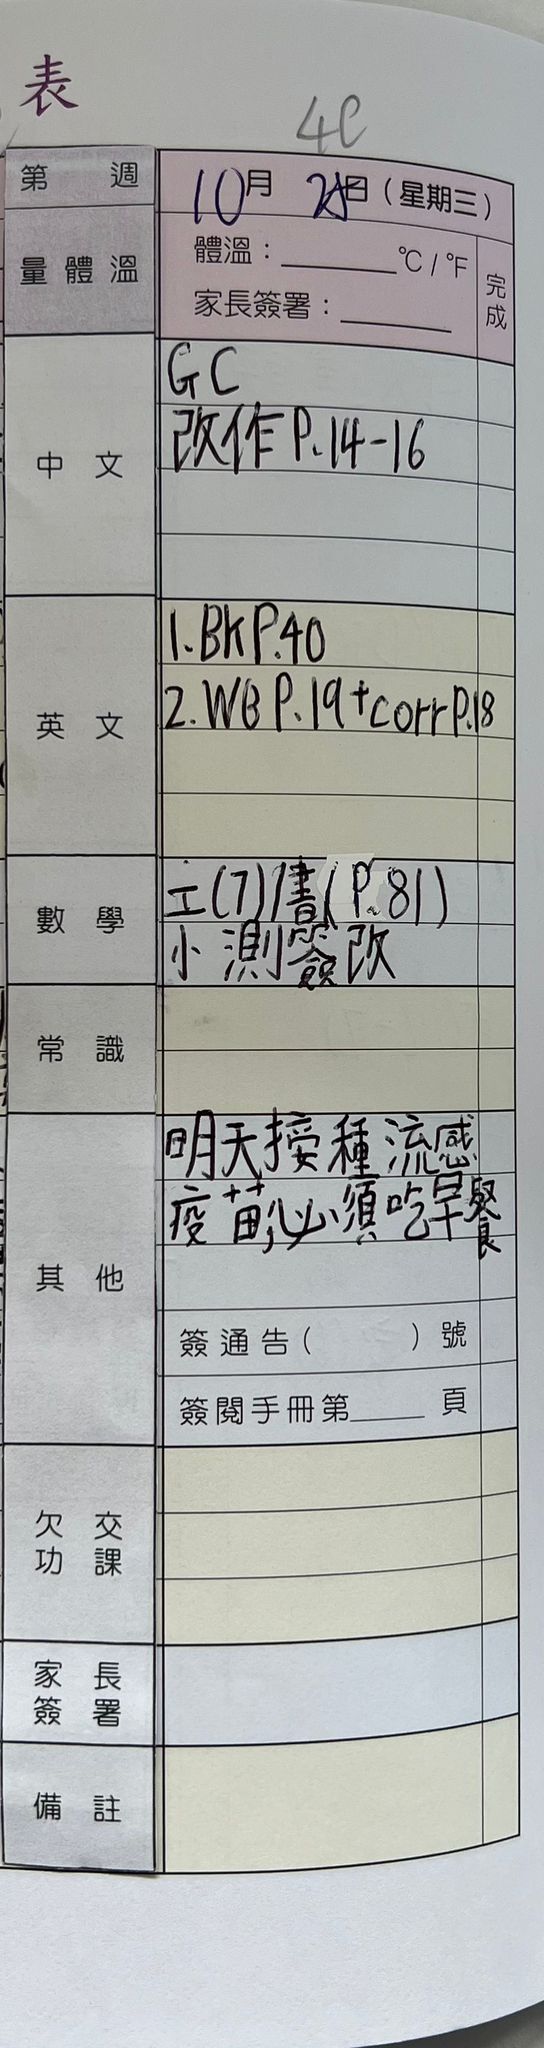 表
4C
第 週
10月 25日（星期三）
量體溫
體溫：______°C / °F
家長簽署：______
完成
中文
GC
改作 P.14-16
英文
1. BK P.40
2. WB P.19 + corr P.18
數學
工(7)/書(P.81)
小測簽改
常識
其他
明天接種流感
疫苗,必須吃早餐
簽通告（ ）號
簽閱手冊第____頁
欠交
功課
家長
簽署
備註